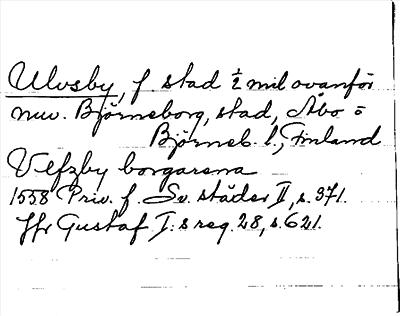 Ulvsby, f. stad ½ mil ovanför
nuv. Björneborg, stad, Åbo o
Björneb. l., Finland
Vlfzby borgarena
1558 Priv. f. Sv. städer II, s. 371.
Jfr Gustaf I:s reg. 28, s. 621.